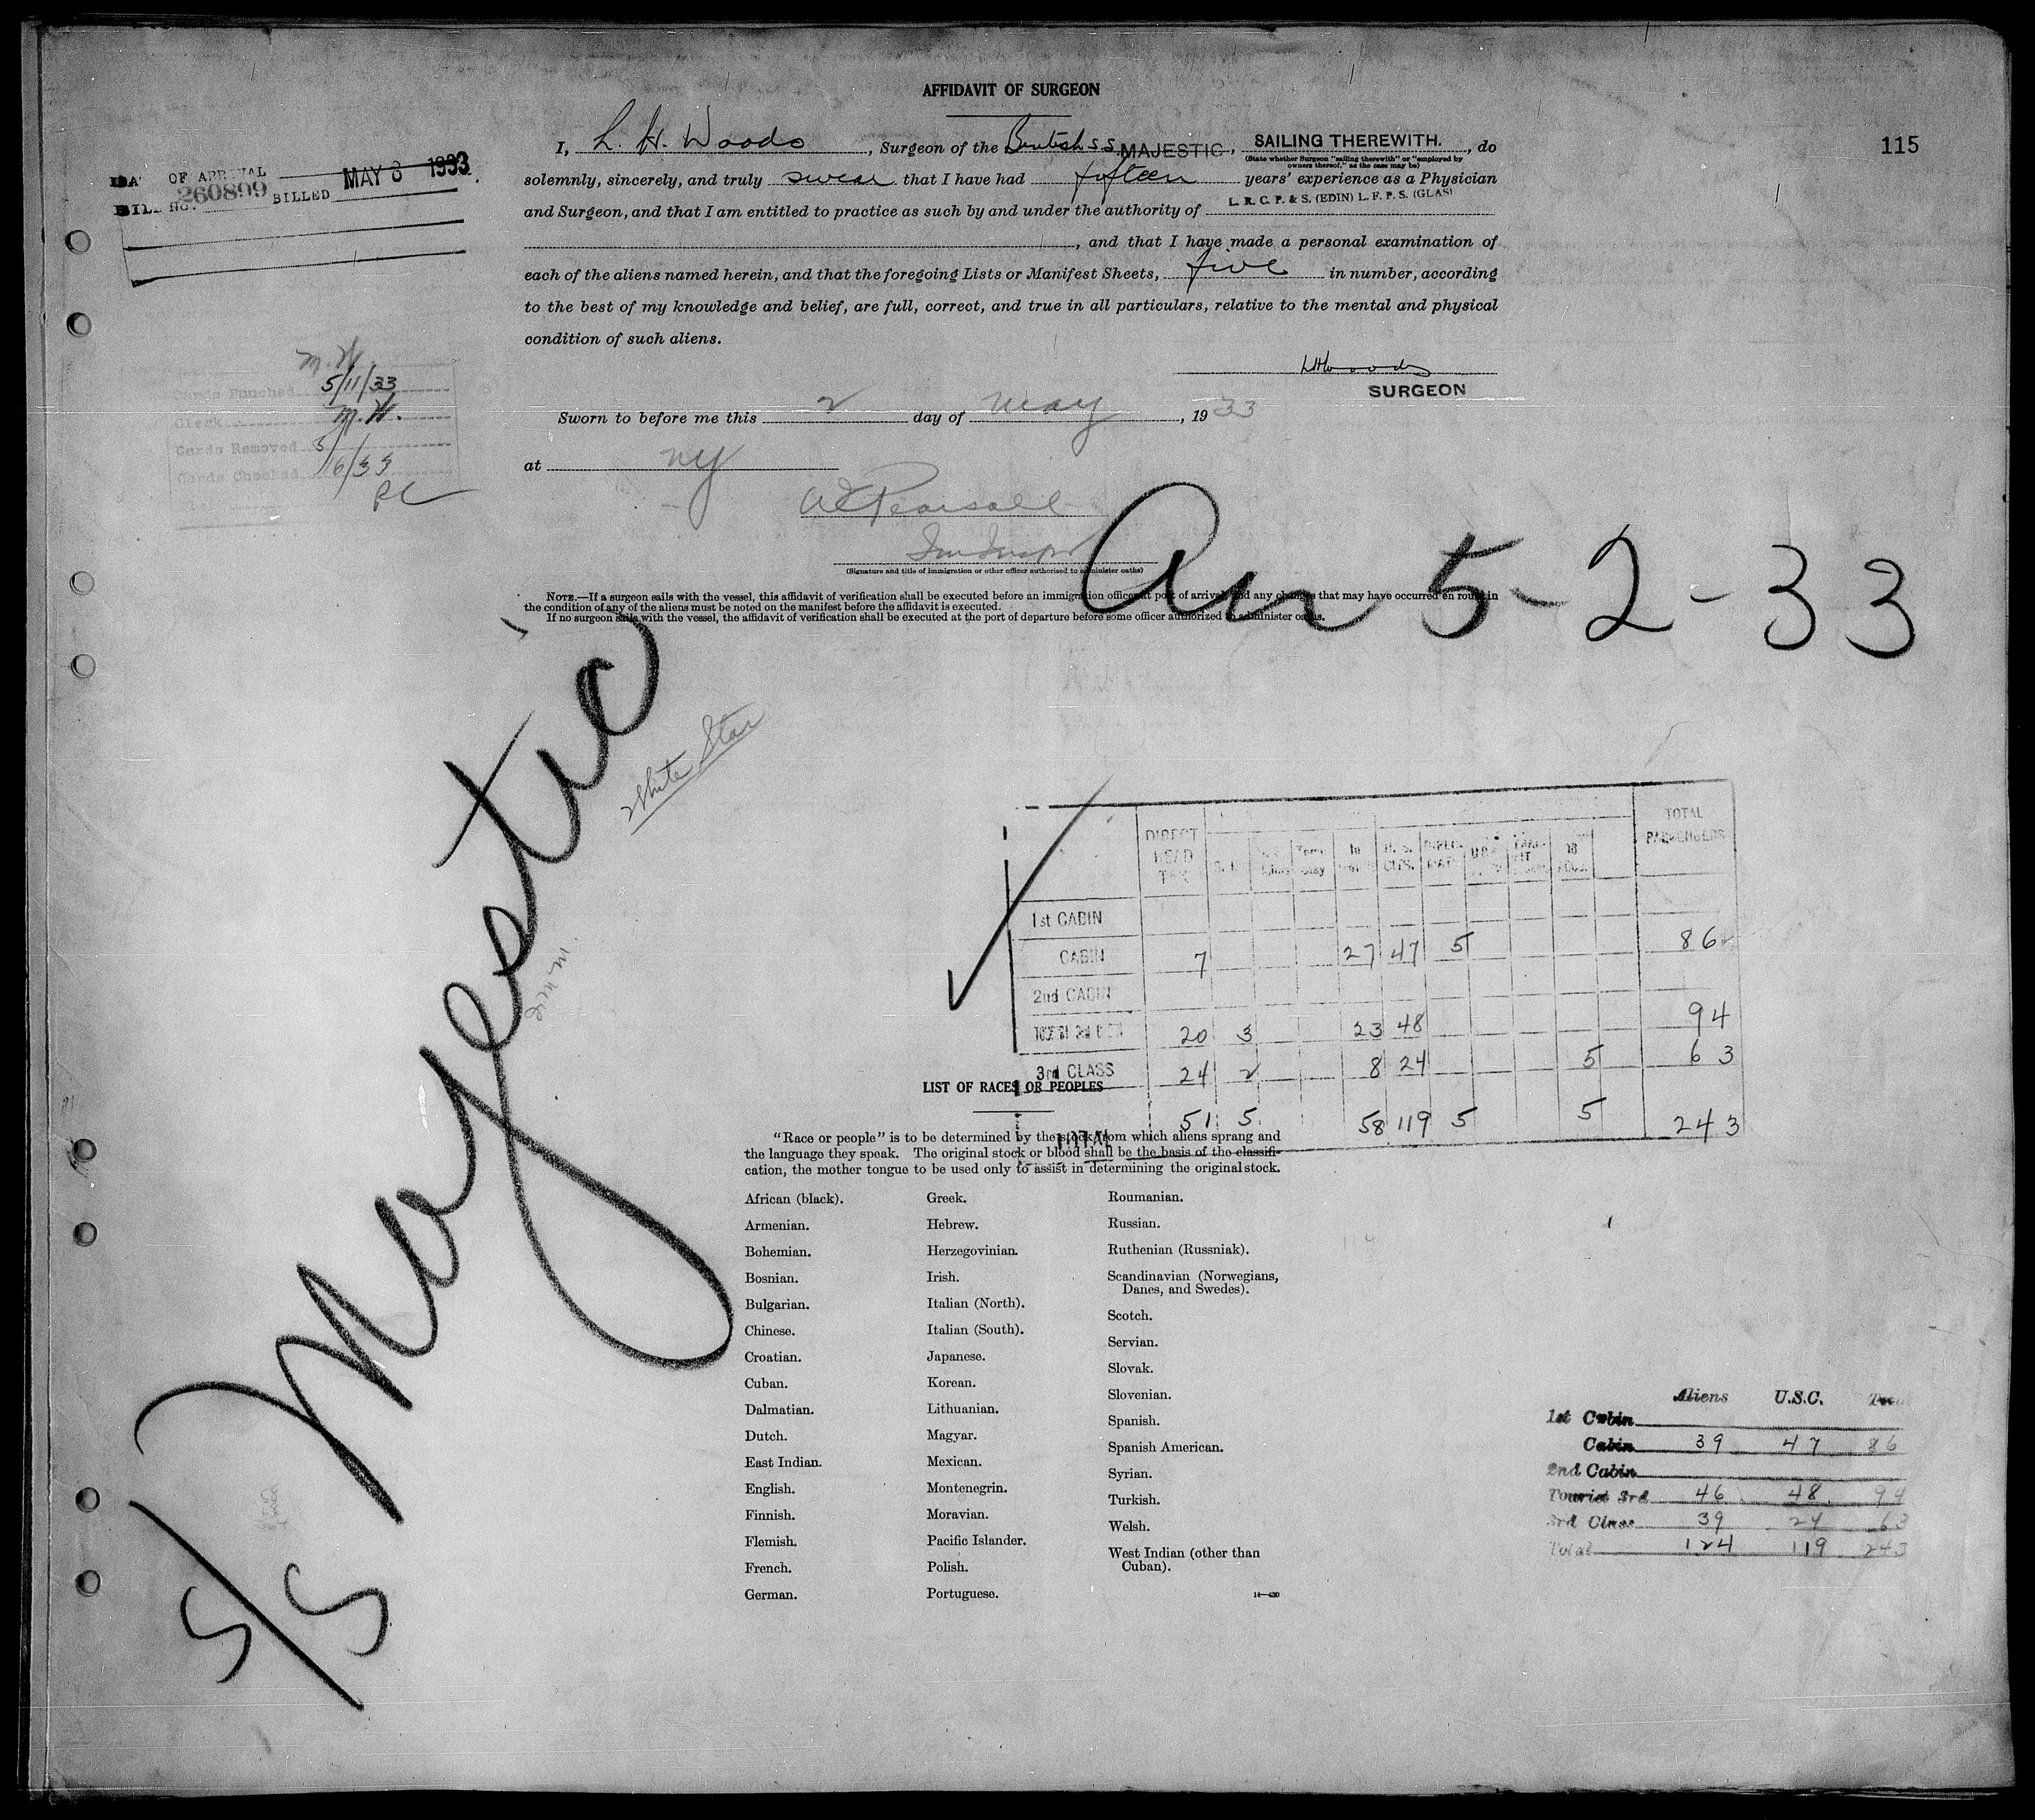 AFFIDAVIT OF SURGEON
115
I, L. H. Woods, Surgeon of the British S.S. MAJESTIC, SAILING THEREWITH., do
(State whether Surgeon "sailing therewith" or "employed by owners thereof," as the case may be)
solemnly, sincerely, and truly swear that I have had fifteen years' experience as a Physician
and Surgeon, and that I am entitled to practice as such by and under the authority of L. R. C. P. & S. (EDIN) L. F. P. S. (GLAS)
, and that I have made a personal examination of
each of the aliens named herein, and that the foregoing Lists or Manifest Sheets, five in number, according
to the best of my knowledge and belief, are full, correct, and true in all particulars, relative to the mental and physical
condition of such aliens.
LHWoods
SURGEON
Sworn to before me this 2 day of May, 1933
at NY
(Signature and title of immigration or other officer authorized to administer oaths)
OF ARRIVAL
260899 BILLED MAY 8 1933
M. W.
Cards Punched 5/11/33
Clerk M. W.
Cards Removed 5/
Cards Checked 16/33
Arr 5-2-33
NOTE.—If a surgeon sails with the vessel, this affidavit of verification shall be executed before an immigration officer at port of arrival and any change that may have occurred en route in
the condition of any of the aliens must be noted on the manifest before the affidavit is executed.
If no surgeon sails with the vessel, the affidavit of verification shall be executed at the port of departure before some officer authorized to administer oaths.
S/S Majestic
White Star
DIRECT HEAD TAX
U. S. CITS.
TOTAL PASSENGERS
1st CABIN
CABIN 7 27 47 5 86
2nd CABIN
20 3 23 48 94
3rd CLASS 24 2 8 24 5 63
TOTAL 51 5 58 119 5 5 243
LIST OF RACES OR PEOPLES
"Race or people" is to be determined by the stock from which aliens sprang and
the language they speak. The original stock or blood shall be the basis of the classifi-
cation, the mother tongue to be used only to assist in determining the original stock.
African (black).
Armenian.
Bohemian.
Bosnian.
Bulgarian.
Chinese.
Croatian.
Cuban.
Dalmatian.
Dutch.
East Indian.
English.
Finnish.
Flemish.
French.
German.
Greek.
Hebrew.
Herzegovinian.
Irish.
Italian (North).
Italian (South).
Japanese.
Korean.
Lithuanian.
Magyar.
Mexican.
Montenegrin.
Moravian.
Pacific Islander.
Polish.
Portuguese.
Roumanian.
Russian.
Ruthenian (Russniak).
Scandinavian (Norwegians,
Danes, and Swedes).
Scotch.
Servian.
Slovak.
Slovenian.
Spanish.
Spanish American.
Syrian.
Turkish.
Welsh.
West Indian (other than
Cuban).
14—430
Aliens U.S.C. Total
1st Cabin
Cabin 39 47 86
2nd Cabin
Tourist 3rd 46 48 94
3rd Class 39 24 63
Total 124 119 243